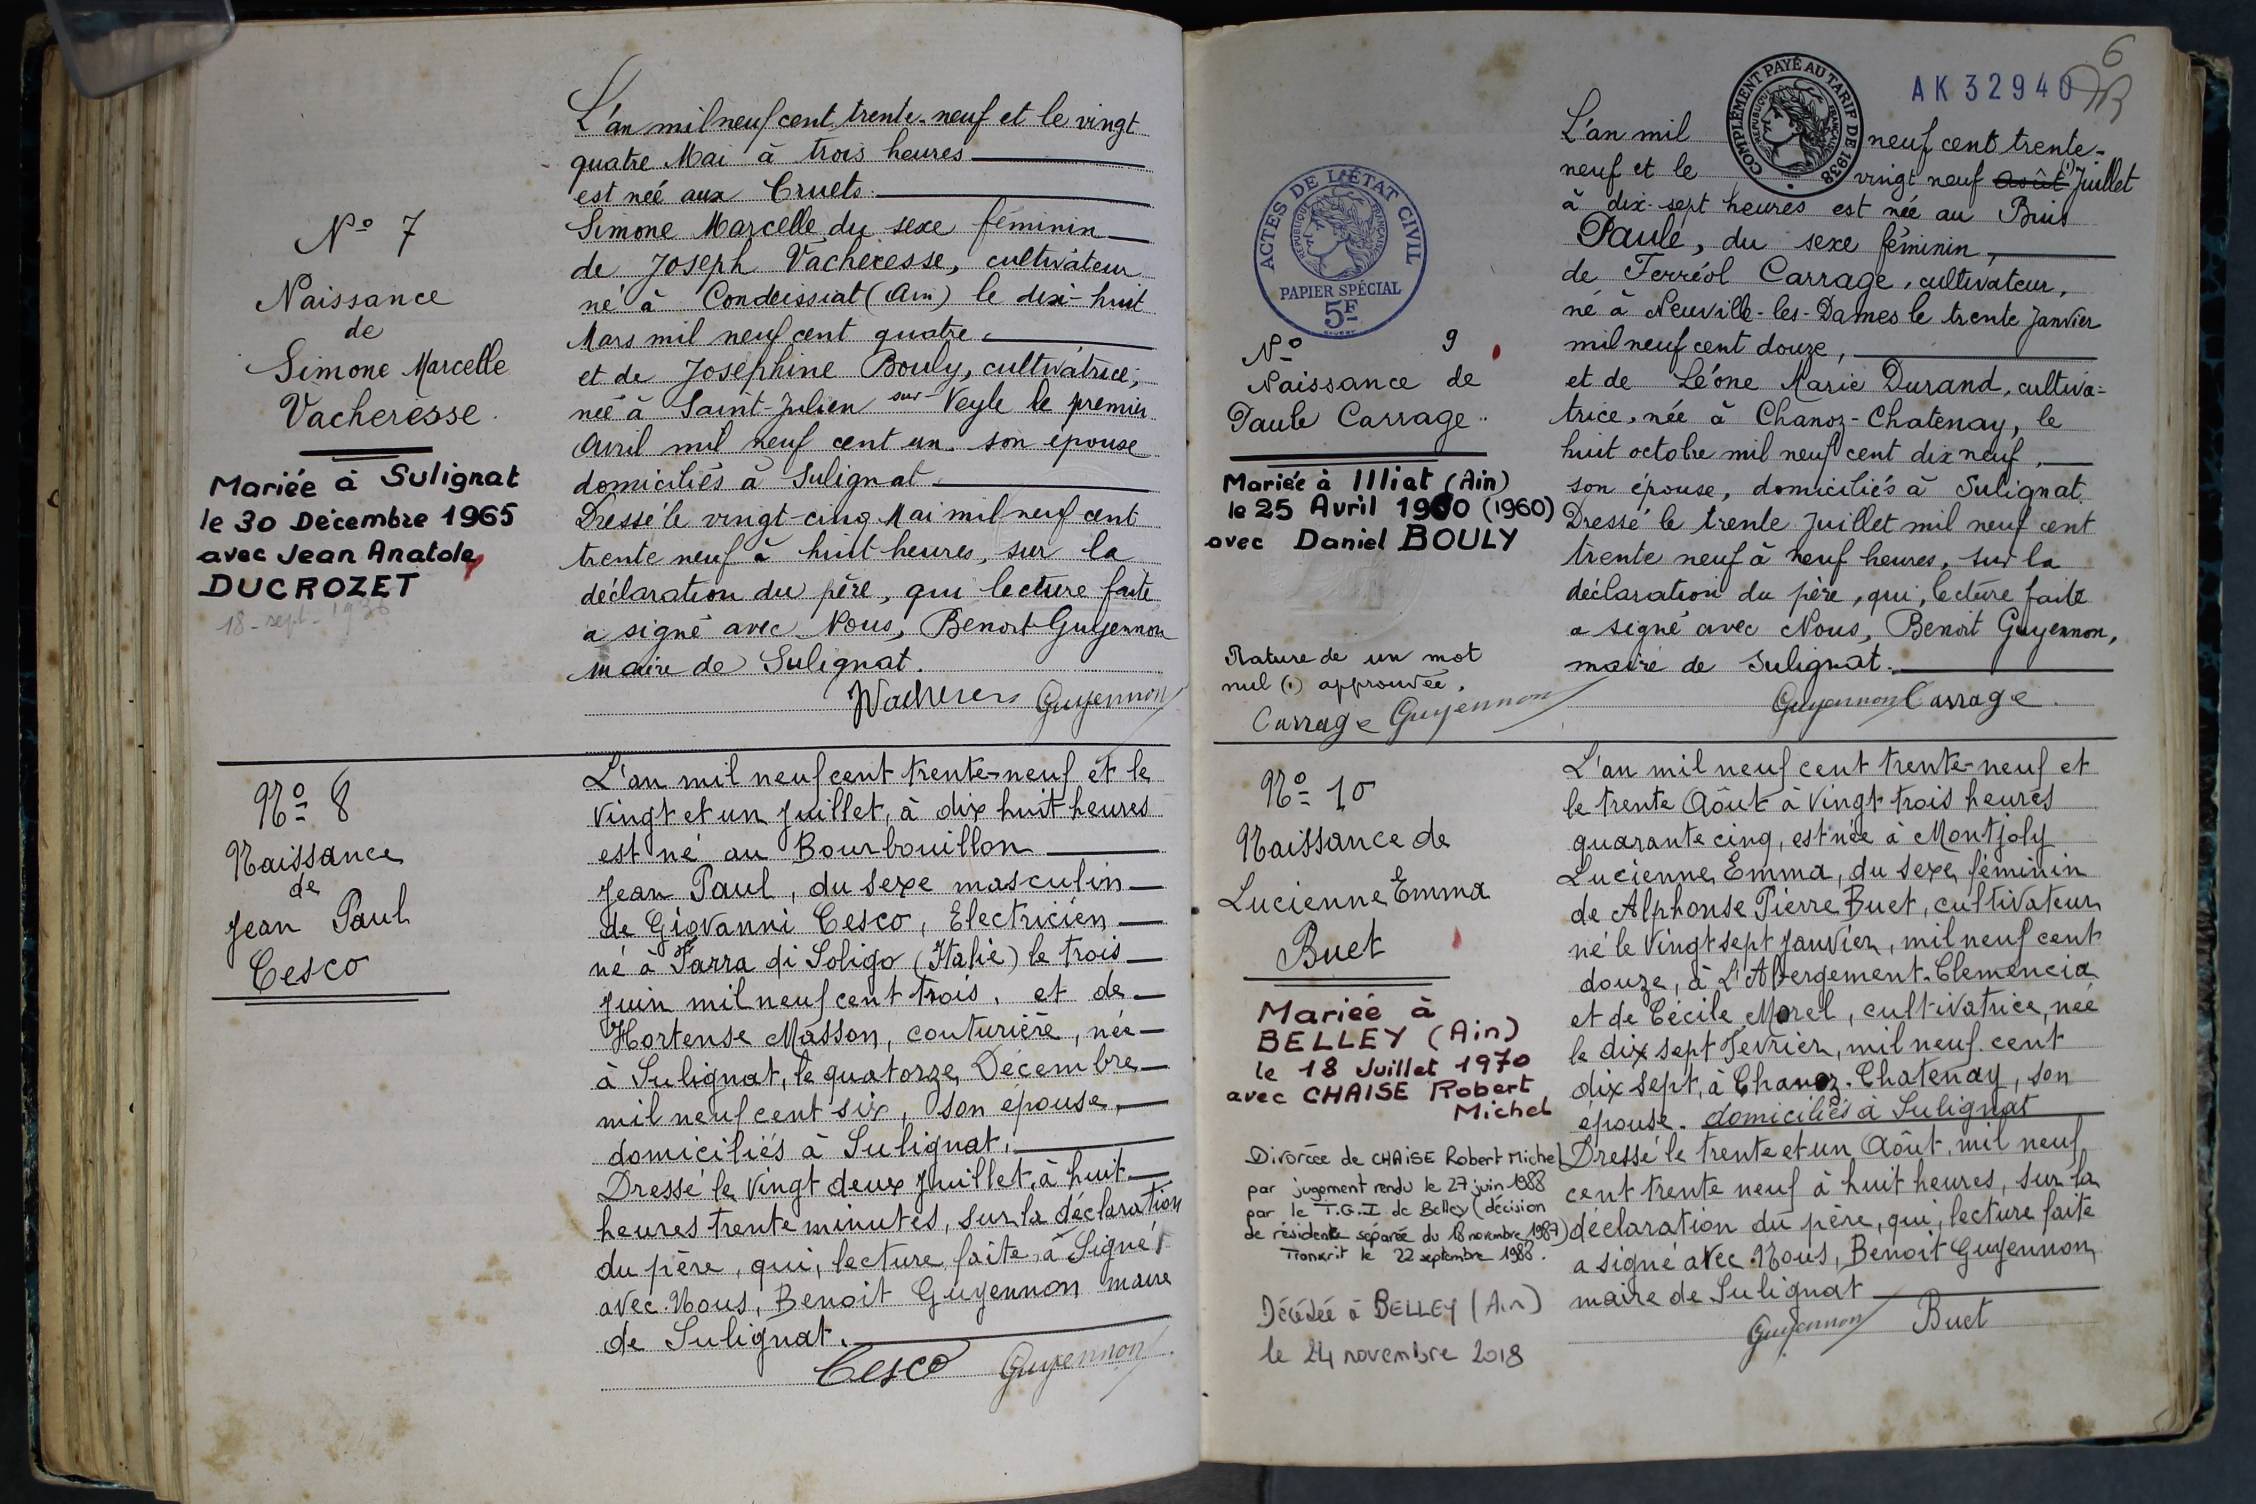 N° 7
Naissance
de
Simone Marcelle
Vacheresse.
Mariée à Sulignat
le 30 Décembre 1965
avec Jean Anatole
DUCROZET
18-sept-1936
L'an mil neuf cent trente-neuf et le vingt
quatre Mai à trois heures
est née aux Cruets.
Simone Marcelle du sexe féminin
de Joseph Vacheresse, cultivateur
né à Condeissiat (Ain) le dix-huit
Mars mil neuf cent quatre,
et de Joséphine Bouly, cultivatrice,
née à Saint-Julien sur Veyle le premier
Avril mil neuf cent un. son épouse
domiciliés à Sulignat
Dressé le vingt-cinq Mai mil neuf cent
trente neuf à huit heures, sur la
déclaration du père, qui lecture faite
a signé avec Nous, Benoit Guyennon
maire de Sulignat.
Guyennon
N° 8
Naissance
de
Jean Paul
Cesco
L'an mil neuf cent trente-neuf et le
vingt et un Juillet, à dix huit heures
est né au Bourbouillon
Jean Paul, du sexe masculin
de Giovanni Cesco, Electricien
né à Farra di Soligo (Italie) le trois
Juin mil neuf cent trois, et de
Hortense Masson, couturière, née
à Sulignat, le quatorze Décembre
mil neuf cent six, son épouse,
domiciliés à Sulignat.
Dressé le vingt deux Juillet, à huit
heures trente minutes, sur la déclaration
du père, qui, lecture faite, a Signé
avec Nous, Benoit Guyennon maire
de Sulignat.
Cesco Guyennon
6
AK 32940
COMPLÉMENT PAYÉ AU TARIF DE 1938
RÉPUBLIQUE FRANÇAISE
ACTES DE L'ÉTAT CIVIL
RÉPUBLIQUE FRANÇAISE
PAPIER SPÉCIAL
5F
N° 9
Naissance de
Paule Carrage.
Mariée à Illiat (Ain)
le 25 Avril 1960 (1960)
avec Daniel BOULY
Rature de un mot
nul (1) approuvée.
Carrage Guyennon
L'an mil neuf cent trente-
neuf et le vingt neuf Août (1) Juillet
à dix-sept heures est née au Buis
Paule, du sexe féminin,
de Ferréol Carrage, cultivateur,
né à Neuville-les-Dames le trente Janvier
mil neuf cent douze,
et de Léone Marie Durand, cultiva=
trice, née à Chanoz-Chatenay, le
huit octobre mil neuf cent dix neuf,
son épouse, domiciliés à Sulignat.
Dressé le trente Juillet mil neuf cent
trente neuf à neuf heures, sur la
déclaration du père, qui, lecture faite
a signé avec Nous, Benoit Guyennon,
maire de Sulignat.
Guyennon Carrage.
N° 10
Naissance de
Lucienne Emma
Buet
Mariée à
BELLEY (Ain)
le 18 Juillet 1970
avec CHAISE Robert
Michel
Divorcée de CHAISE Robert Michel
par jugement rendu le 27 juin 1988
par le T.G.I. de Belley (décision
de résidence séparée du 18 novembre 1987)
Transcrit le 22 septembre 1988.
Décédée à BELLEY (Ain)
le 24 novembre 2018
L'an mil neuf cent trente-neuf et
le trente Août à vingt trois heures
quarante cinq, est née à Montjoly
Lucienne, Emma, du sexe, féminin
de Alphonse Pierre Buet, cultivateur
né le vingt sept Janvier, mil neuf cent
douze, à L'Abergement-Clemencia
et de Cécile Morel, cultivatrice, née
le dix sept Fevrier, mil neuf cent
dix sept, à Chanoz-Chatenay, son
épouse. domiciliés à Sulignat
Dressé le trente et un Août, mil neuf
cent trente neuf à huit heures, sur la
déclaration du père, qui, lecture faite
a signé avec Nous, Benoit Guyennon
maire de Sulignat
Guyennon Buet